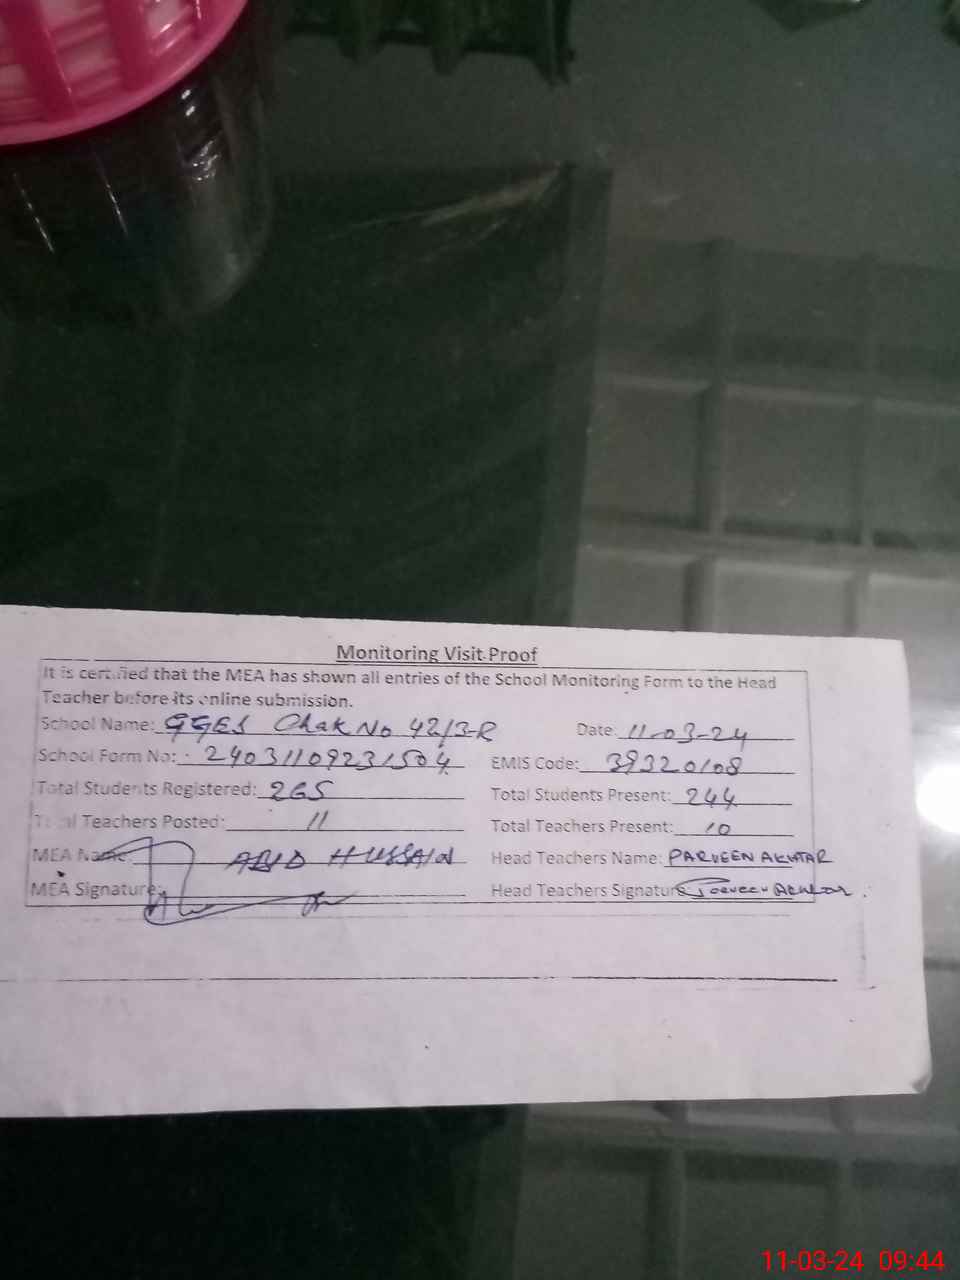 Monitoring Visit Proof
It is certified that the MEA has shown all entries of the School Monitoring Form to the Head
Teacher before its online submission.
School Name: GGES Chak No 42/3-R Date: 11-03-24
School Form No: 24031109231504 EMIS Code: 39320108
Total Students Registered: 265 Total Students Present: 244
Total Teachers Posted: 11 Total Teachers Present: 10
MEA Name: ABID HUSSAIN Head Teachers Name: PARVEEN AKHTAR
MEA Signature: Head Teachers Signature: Parveen Akhtar
11-03-24 09:44